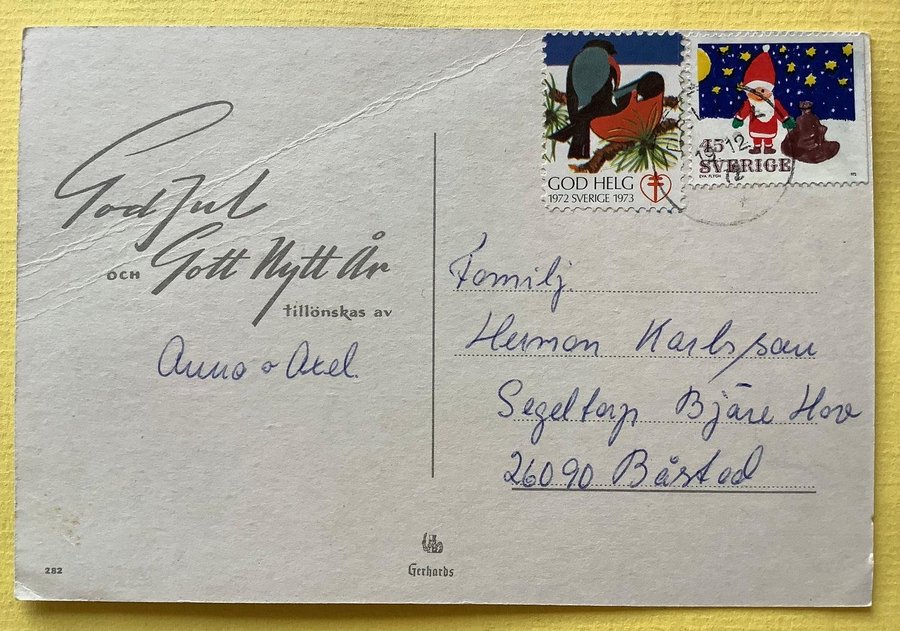 God Jul
OCH Gott Nytt År
tillönskas av
Anna o Axel.
282
GOD HELG
1972 SVERIGE 1973
45
SVERIGE
EVA FLYGH
19 12
72
Familj
Herman Karlsson
Segeltorp Bjäre Hov
26090 Båstad
Gerhards